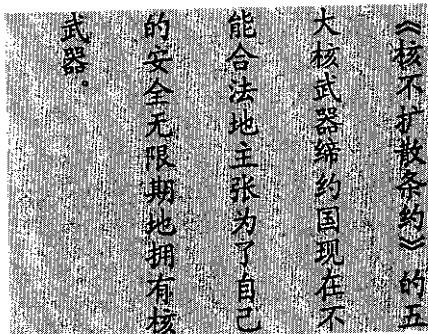 《核不扩散条约》的五
大核武器缔约国现在不
能合法地主张为了自己
的安全无限期地拥有核
武器。